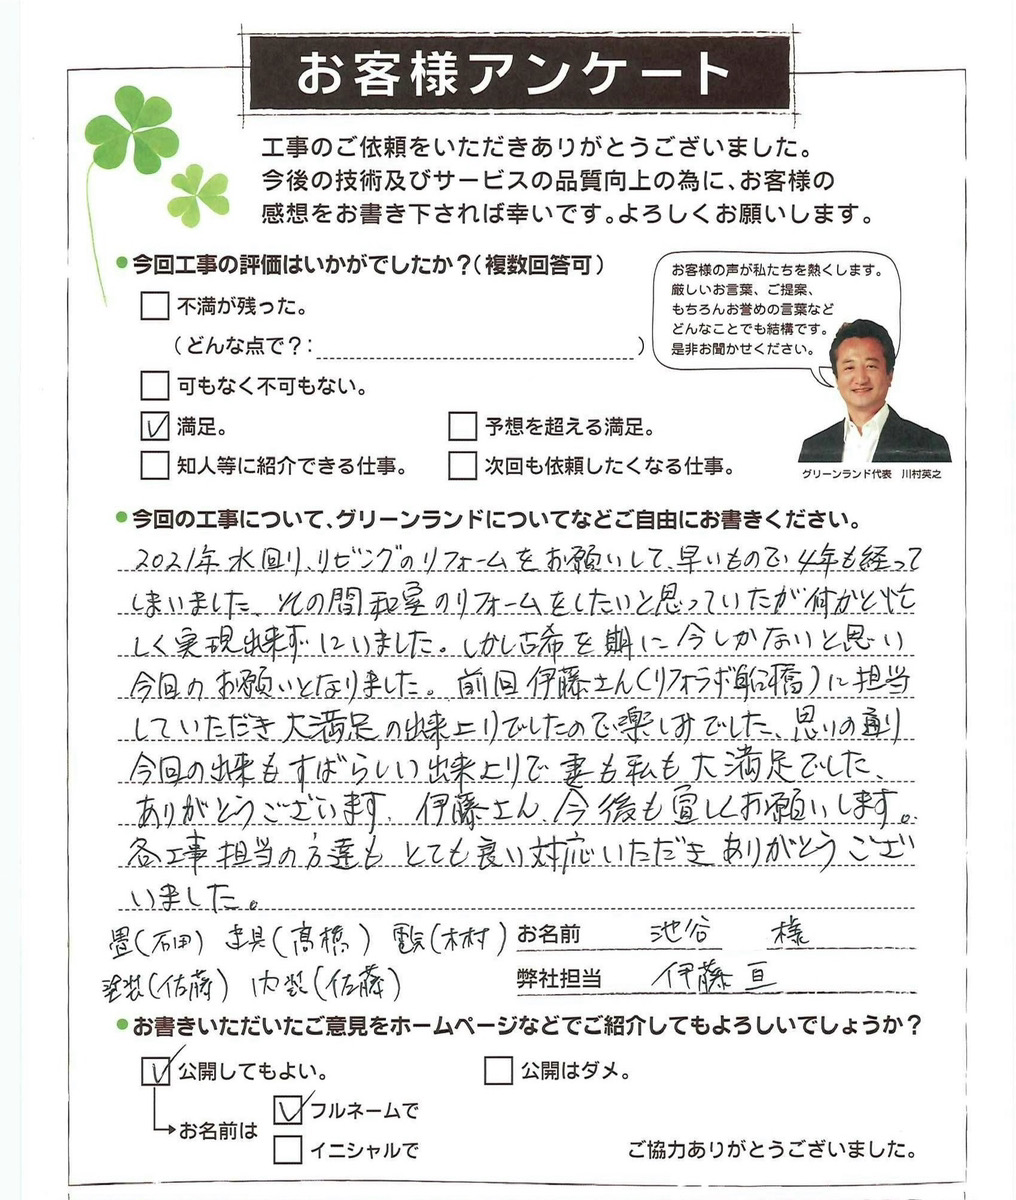 お客様アンケート
工事のご依頼をいただきありがとうございました。
今後の技術及びサービスの品質向上の為に、お客様の
感想をお書き下されば幸いです。よろしくお願いします。
●今回工事の評価はいかがでしたか?(複数回答可)
不満が残った。
(どんな点で?: )
可もなく不可もない。
満足。
予想を超える満足。
知人等に紹介できる仕事。
次回も依頼したくなる仕事。
お客様の声が私たちを熱くします。
厳しいお言葉、ご提案、
もちろんお誉めの言葉など
どんなことでも結構です。
是非お聞かせください。
グリーンランド代表 川村英之
●今回の工事について、グリーンランドについてなどご自由にお書きください。
2021年水回り、リビングのリフォームをお願いして、早いもので4年も経って
しまいました、その間和室のリフォームをしたいと思っていたが何かと忙
しく実現出来ずにいました。しかし古希を期に今しかないと思い
今回のお願いとなりました。前回伊藤さん(リフォラボ船橋)に担当
していただき大満足の出来上りでしたので楽しみでした、思いの通り
今回の出来もすばらしい出来上りで妻も私も大満足でした、
ありがとうございます、伊藤さん、今後も宜しくお願いします。
各工事担当の方達もとても良い対応いただきありがとうござ
いました。
畳(石田) 建具(髙橋) 電気(木村)
塗装(佐藤) 内装(佐藤)
お名前 池谷 様
弊社担当 伊藤 亘
●お書きいただいたご意見をホームページなどでご紹介してもよろしいでしょうか?
公開してもよい。
公開はダメ。
お名前は
フルネームで
イニシャルで
ご協力ありがとうございました。